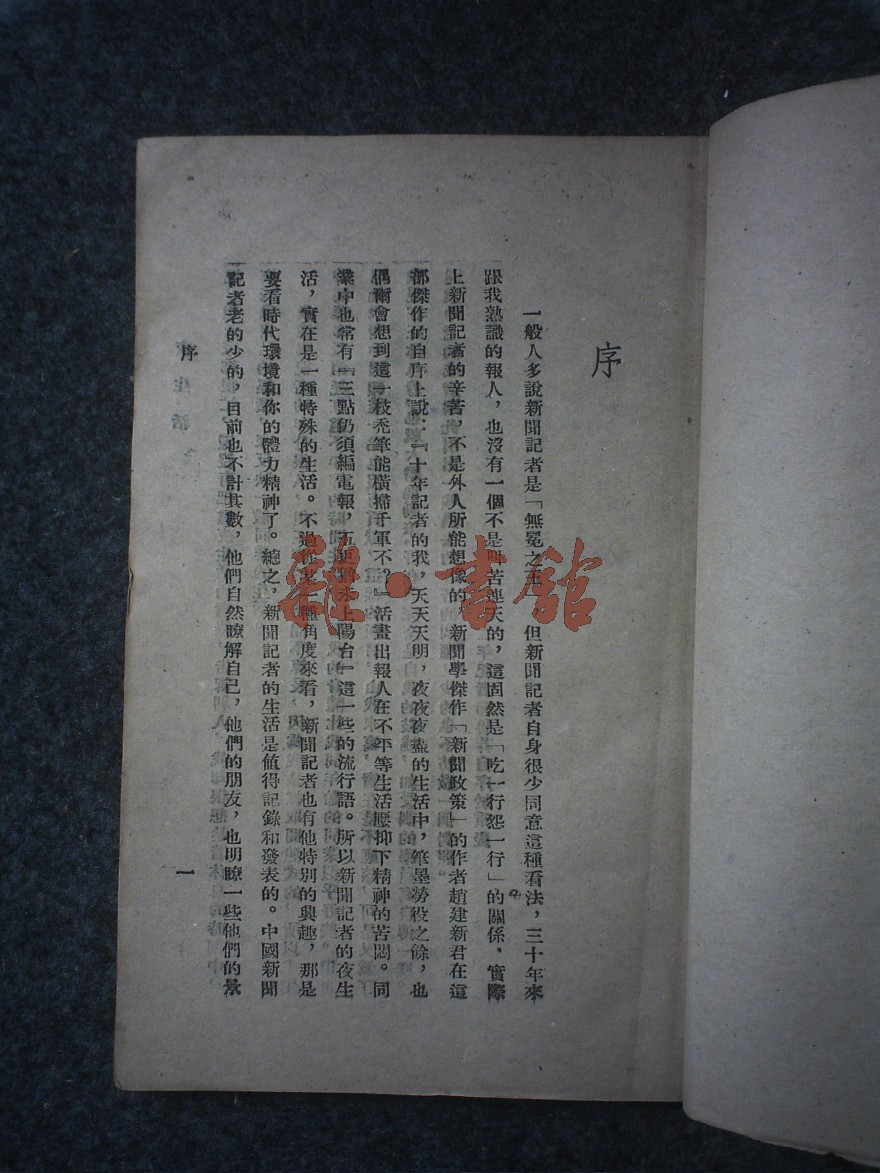 序
一般人多說新聞記者是「無冕之王」 但新聞記者自身很少同意這種看法，三十年來
跟我熟識的報人，也沒有一個不是叫苦連天的，這固然是「吃一行怨一行」的關係，實際
上新聞記者的辛苦，不是外人所能想像的，新聞學傑作「新聞政策」的作者趙建新君在這
部傑作的自序上說：「十年記者的我，天天天明，夜夜夜盡的生活中，筆墨勞役之餘，也
偶爾會想到這一枝禿筆能橫掃千軍不？」活畫出報人在不平等生活壓抑下精神的苦悶。同
業中也常有「三點仍須編電報，五更 未上陽台」這一些的流行語。所以新聞記者的夜生
活，實在是一種特殊的生活。不過從某一種角度來看，新聞記者也有他特別的興趣，那是
要看時代環境和你的體力精神了。總之，新聞記者的生活是值得記錄和發表的。中國新聞
記者老的少的，目前也不計其數，他們自然瞭解自己，他們的朋友，也明瞭一些他們的景
序
一
雜·書館